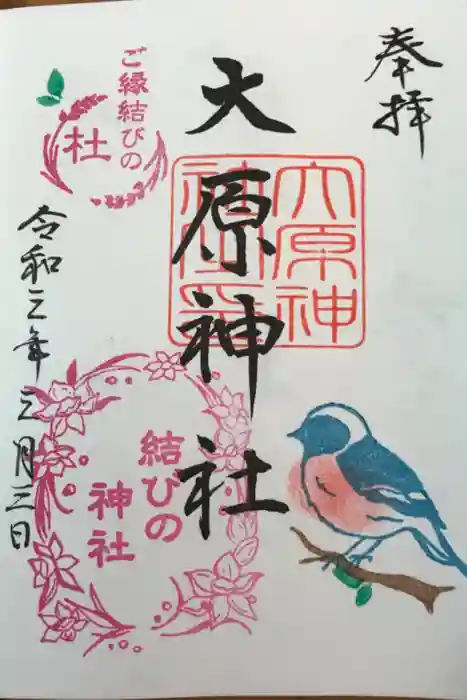 奉拝
大原神社
大原神
ご縁結びの
杜
令和三年三月三日
結びの
神社